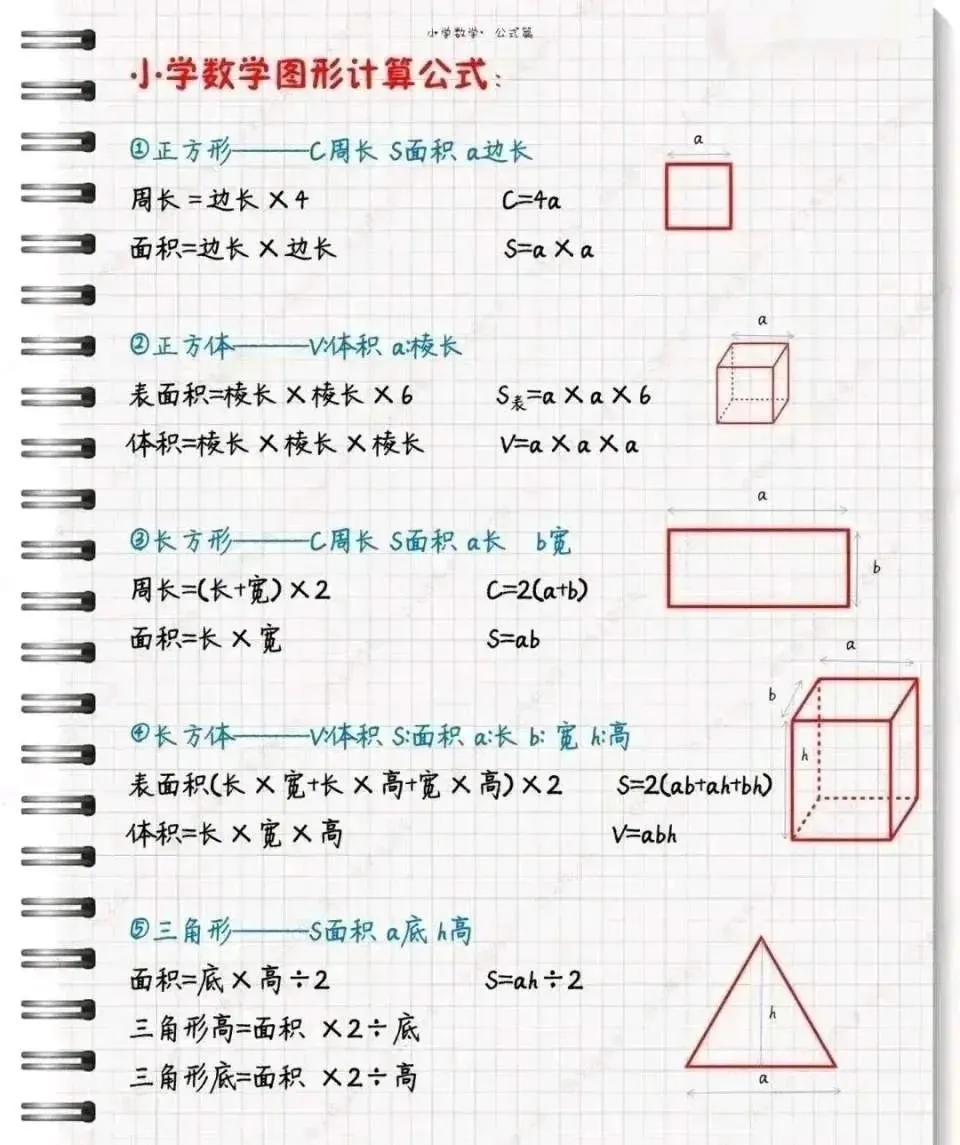 小学数学·公式篇
小学数学图形计算公式：
①正方形———C周长 S面积 a边长
周长=边长×4 C=4a
面积=边长×边长 S=a×a
a
②正方体———V:体积 a:棱长
表面积=棱长×棱长×6 S表=a×a×6
体积=棱长×棱长×棱长 V=a×a×a
a
③长方形———C周长 S面积 a长 b宽
周长=(长+宽)×2 C=2(a+b)
面积=长×宽 S=ab
a
b
④长方体———V:体积 S:面积 a:长 b: 宽 h:高
表面积(长×宽+长×高+宽×高)×2 S=2(ab+ah+bh)
体积=长×宽×高 V=abh
a
b
h
⑤三角形———S面积 a底 h高
面积=底×高÷2 S=ah÷2
三角形高=面积 ×2÷底
三角形底=面积 ×2÷高
h
a